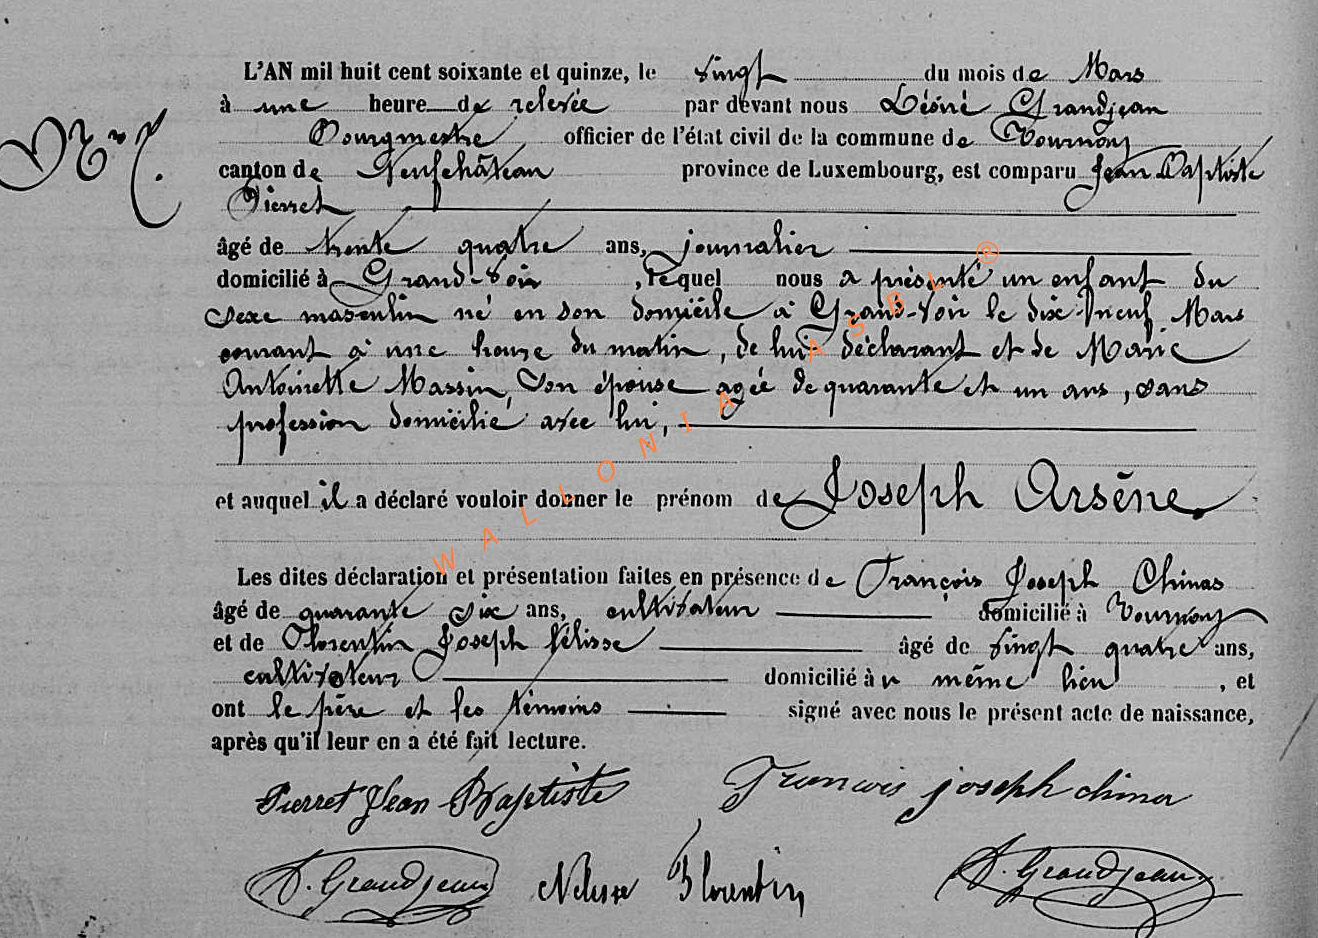 L'AN mil huit cent soixante et quinze, le vingt du mois de Mars
à une heure de relevée par devant nous Désiré Grandjean
Bourgmestre officier de l'état civil de la commune de Tournay
canton de Neufchâteau province de Luxembourg, est comparu Jean Baptiste
Pierret
âgé de trente quatre ans, journalier
domicilié à Grand-Voir, lequel nous a présenté un enfant du
sexe masculin né en son domicile à Grand-Voir le dix-neuf Mars
courant à une heure du matin, de lui déclarant et de Marie
Antoinette Massin, son épouse agée de quarante et un ans, sans
profession domicilié avec lui,
et auquel il a déclaré vouloir donner le prénom de Joseph Arsène.
Les dites déclaration et présentation faites en présence de François Joseph Chinas
âgé de quarante six ans, cultivateur domicilié à Tournay
et de Florentin Joseph Nélisse âgé de vingt quatre ans,
cultivateur domicilié à u même lieu, et
ont le père et les témoins signé avec nous le présent acte de naissance,
après qu'il leur en a été fait lecture.
Pierret Jean Baptiste Francois joseph china
D. Grandjean Nelisse Florentin D. Grandjean
WALLONIA ASBL ®